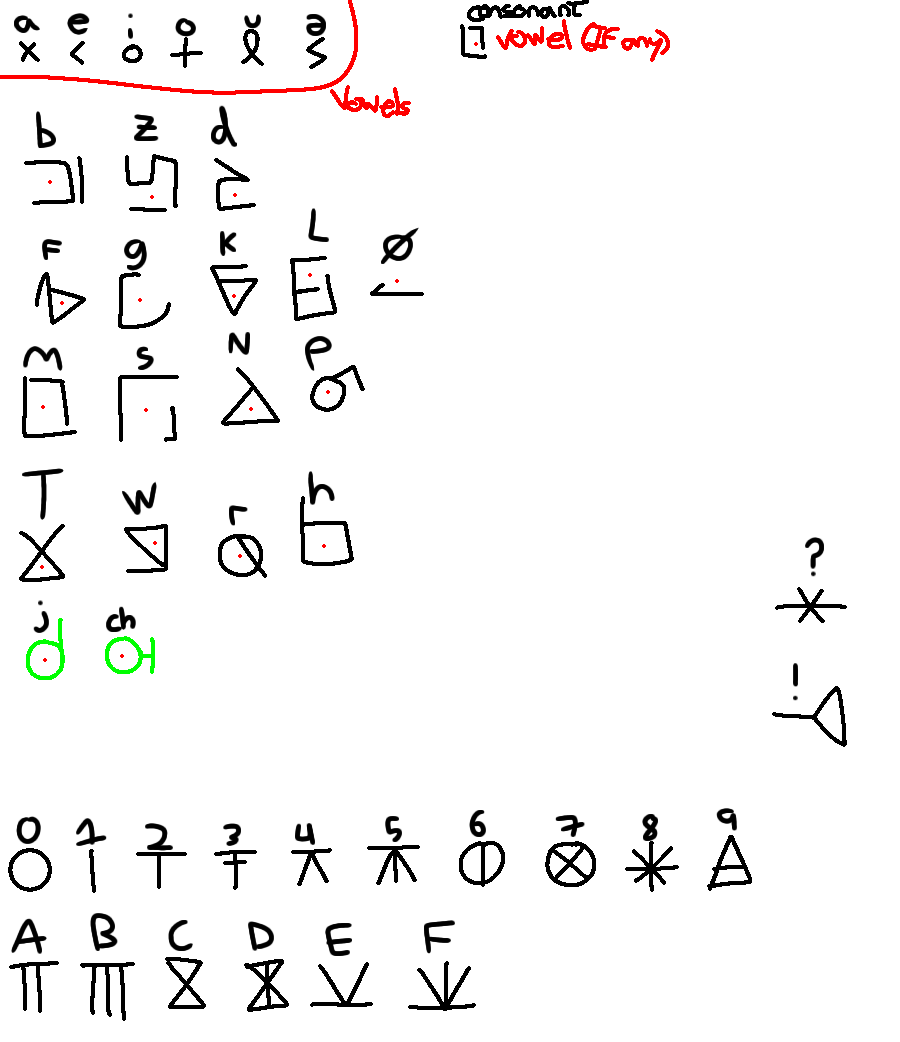 a e i o u ə
consonant
vowel (IF any)
Vowels
b z d
F g K L Ø
M S N P
T W r h
?
j ch
!
0 1 2 3 4 5 6 7 8 9
A B C D E F